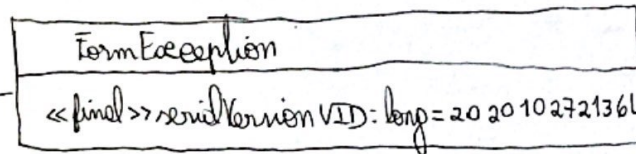 FormException
«final» serialVersionUID: long = 2020102721361L